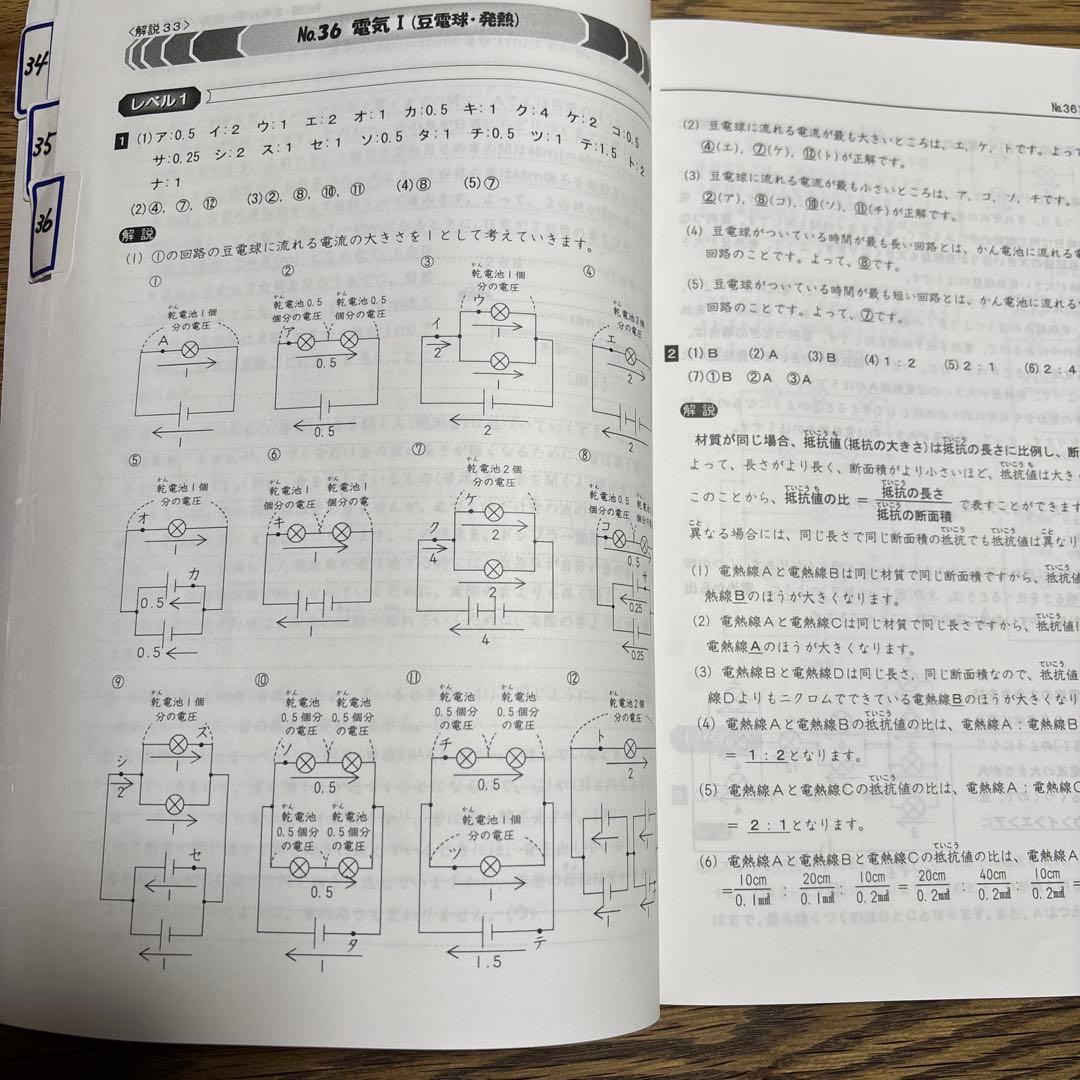 34
35
36
〈解説33〉
No.36 電気Ⅰ(豆電球・発熱)
レベル1
1 (1)ア:0.5 イ:2 ウ:1 エ:2 オ:1 カ:0.5 キ:1 ク:4 ケ:2 コ:0.5
サ:0.25 シ:2 ス:1 セ:1 ソ:0.5 タ:1 チ:0.5 ツ:1 テ:1.5 ト:2
ナ:1
(2)④, ⑦, ⑫ (3)②, ⑧, ⑩, ⑪ (4)⑧ (5)⑦
解説
(1) ①の回路の豆電球に流れる電流の大きさを1として考えていきます。
①
乾電池1個
分の電圧
A
1
1
②
かん かん
乾電池0.5 乾電池0.5
個分の電圧 個分の電圧
ア
0.5
0.5
③
かん
乾電池1個
分の電圧
ウ
1
イ
2
1
2
④
乾電池2個
分の電圧
エ
2
2
⑤
かん
乾電池1個
分の電圧
オ
1
カ
0.5
0.5
⑥
かん かん
乾電池1 乾電池1
個の電圧 個の電
キ
1
1
⑦
かん
乾電池2個
分の電圧
ケ
2
ク
4
2
4
⑧
かん
乾電池0.5
個分の電圧
コ
0.5
サ
0.25
0.25
⑨
かん
乾電池1個
分の電圧
ス
1
シ
2
1
セ
1
1
⑩
かん かん
乾電池 乾電池
0.5個分 0.5個分
の電圧 の電圧
ソ
0.5
かん かん
乾電池 乾電池
0.5個分 0.5個分
の電圧 の電圧
0.5
タ
1
⑪
かん かん
乾電池 乾電池
0.5個分 0.5個分
の電圧 の電圧
チ
0.5
かん
乾電池1個
分の電圧
ツ
1
テ
1.5
⑫
かん
乾電池2個
分の電圧
ト
2
1
1
1
No.36
(2) 豆電球に流れる電流が最も大きいところは、エ、ケ、トです。よって
④(エ), ⑦(ケ), ⑫(ト)が正解です。
(3) 豆電球に流れる電流が最も小さいところは、ア、コ、ソ、チです。
②(ア), ⑧(コ), ⑩(ソ), ⑪(チ)が正解です。
(4) 豆電球がついている時間が最も長い回路とは、かん電池に流れる電
回路のことです。よって、⑧です。
(5) 豆電球がついている時間が最も短い回路とは、かん電池に流れる
回路のことです。よって、⑦です。
2 (1)B (2)A (3)B (4)1:2 (5)2:1 (6)2:4
(7)①B ②A ③A
解説
ていこうち ていこう ていこう
材質が同じ場合、抵抗値(抵抗の大きさ)は抵抗の長さに比例し、断
ていこうち
よって、長さがより長く、断面積がより小さいほど、抵抗値は大き
ていこうち ていこう
このことから、抵抗値の比 = 抵抗の長さ/抵抗の断面積 で表すことができます
こと ていこう ていこうち こと
異なる場合には、同じ長さで同じ断面積の抵抗でも抵抗値は異なり
ていこう
(1) 電熱線Aと電熱線Bは同じ材質で同じ断面積ですから、抵抗
熱線Bのほうが大きくなります。
ていこう
(2) 電熱線Aと電熱線Cは同じ材質で同じ長さですから、抵抗値
電熱線Aのほうが大きくなります。
ていこう
(3) 電熱線Bと電熱線Dは同じ長さ、同じ断面積なので、抵抗
線Dよりもニクロムでできている電熱線Bのほうが大きくなり
ていこう
(4) 電熱線Aと電熱線Bの抵抗値の比は、電熱線A:電熱線B
= 1:2となります。
ていこう
(5) 電熱線Aと電熱線Cの抵抗値の比は、電熱線A:電熱線C
= 2:1となります。
ていこう
(6) 電熱線Aと電熱線Bと電熱線Cの抵抗値の比は、電熱線A
= 10cm/0.1mm² : 20cm/0.1mm² : 10cm/0.2mm² = 20cm/0.2mm² : 40cm/0.2mm² : 10cm/0.2mm² =